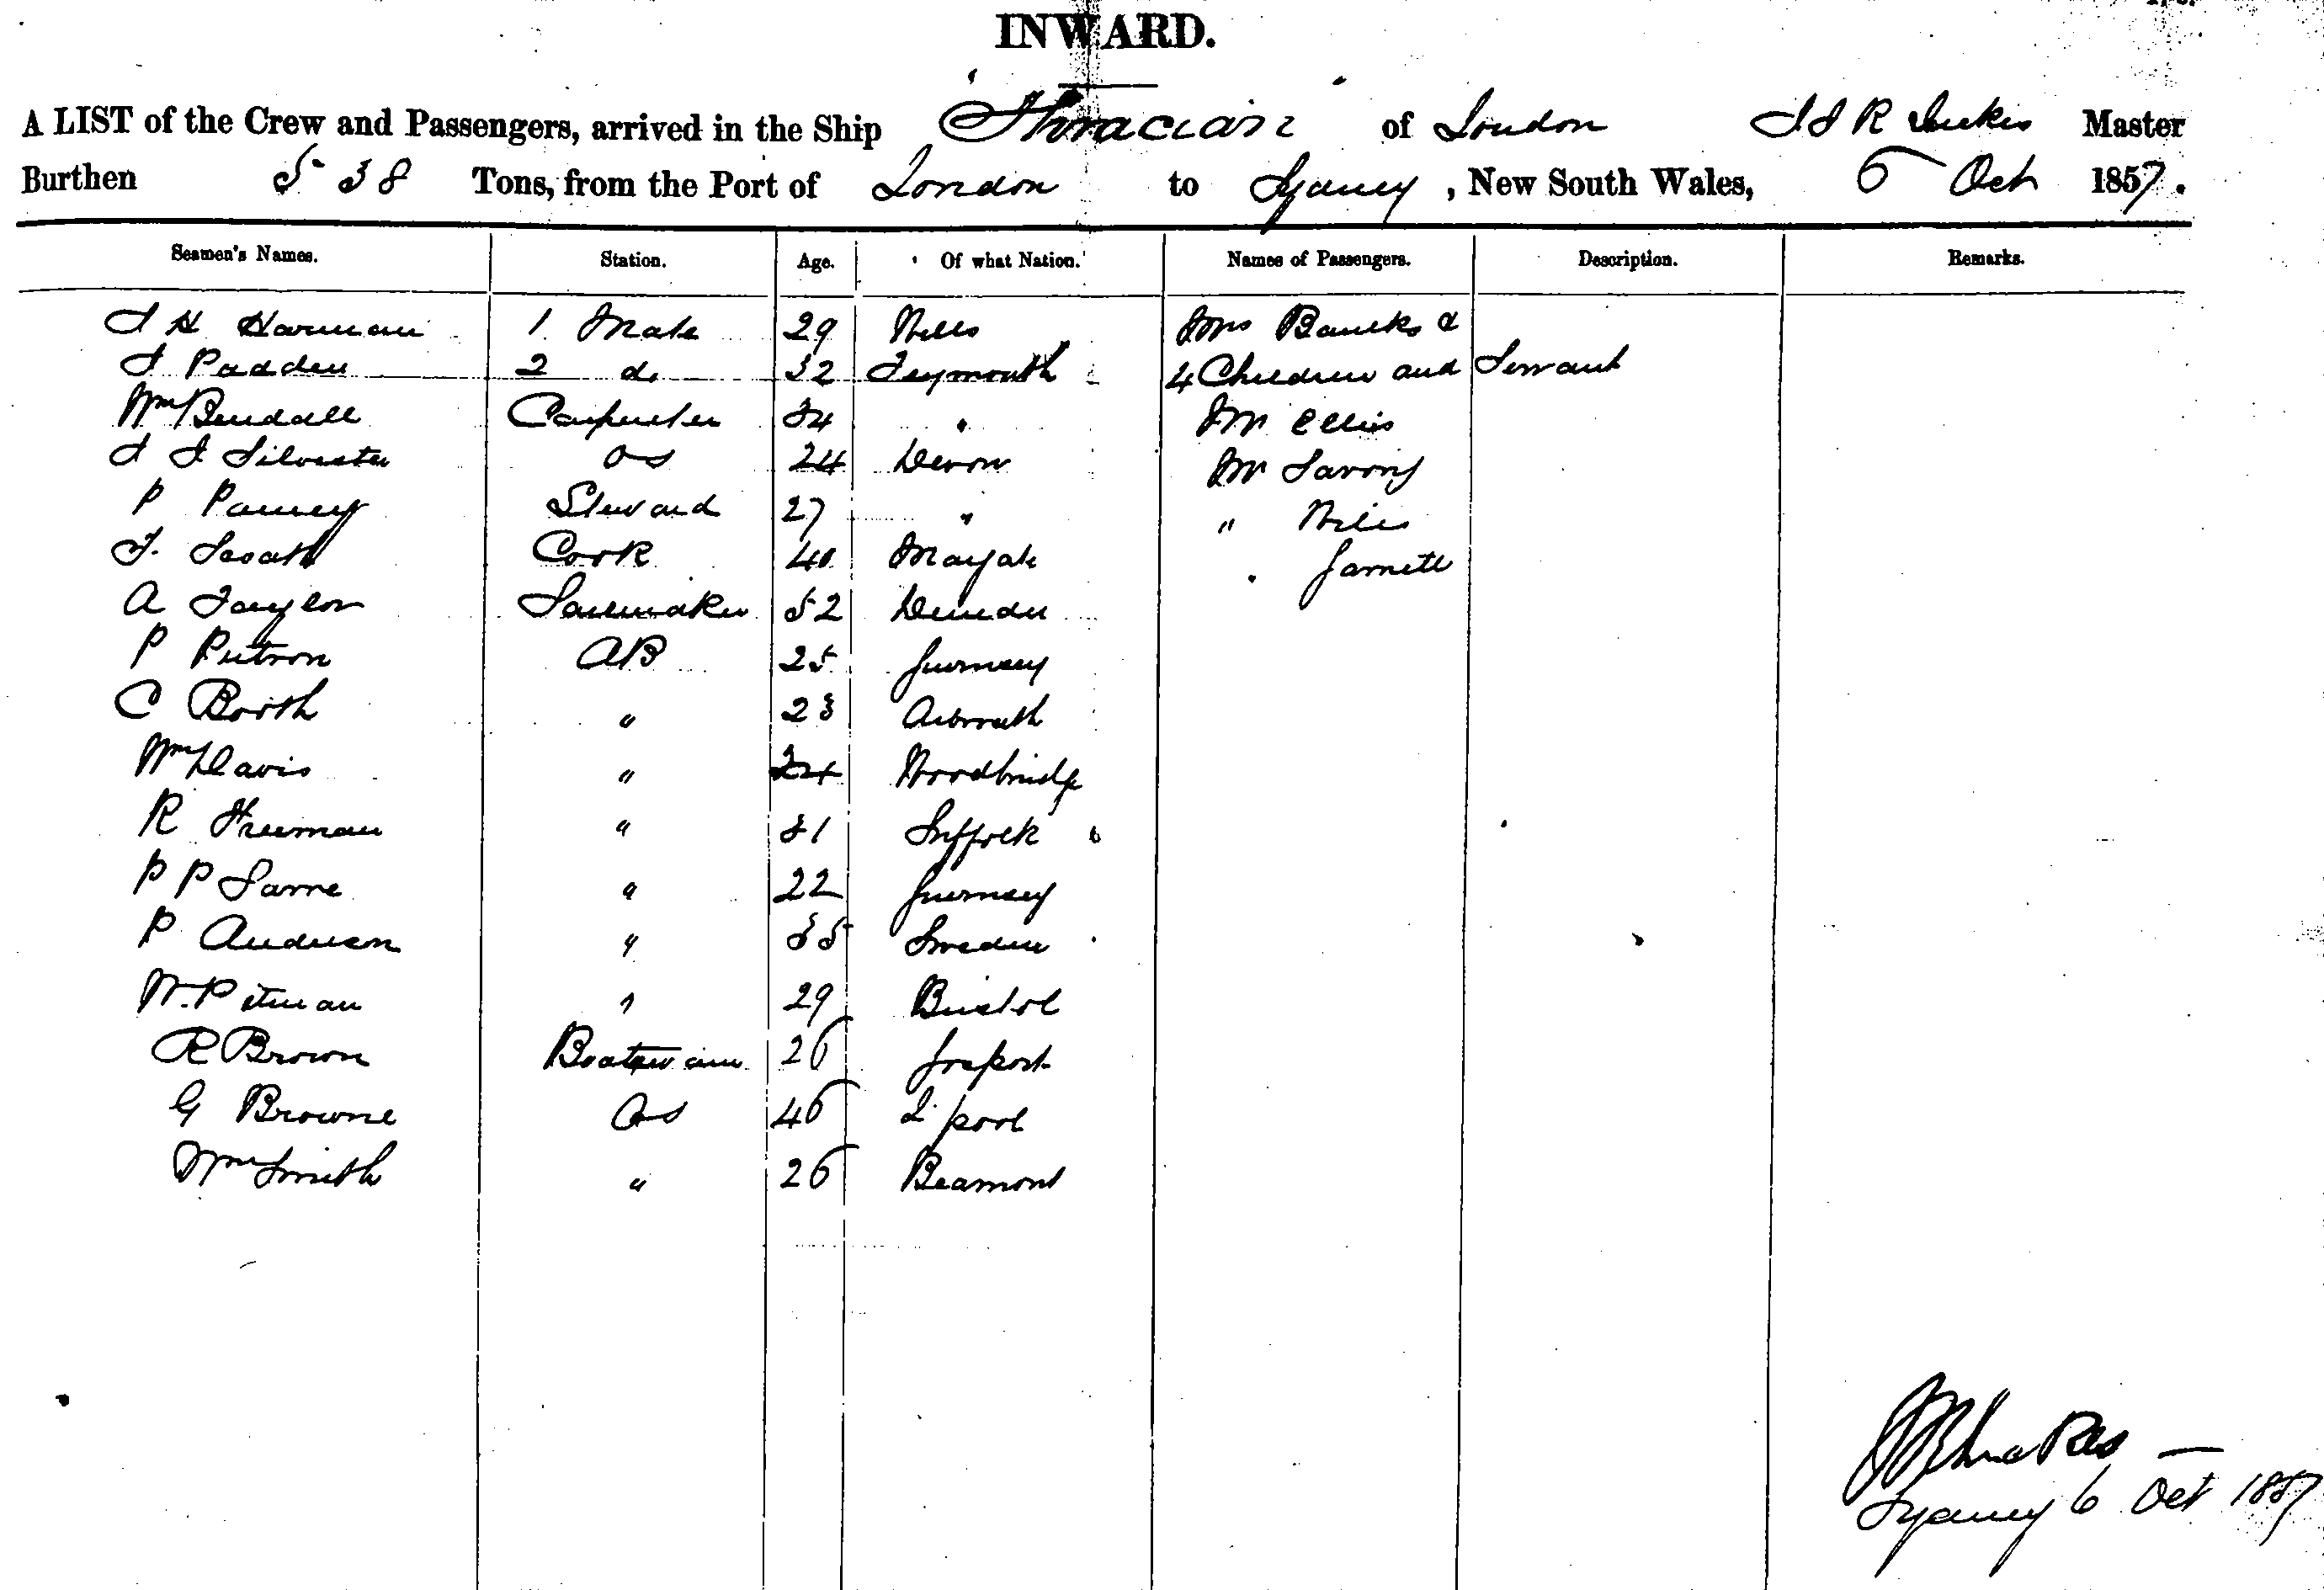 INWARD.
A LIST of the Crew and Passengers, arrived in the Ship "Thracian" of London J J R Master
Burthen 538 Tons, from the Port of London to Sydney, New South Wales, 6 Oct 1857.
Seamen's Names. Station. Age. Of what Nation. Names of Passengers. Description. Remarks.
J H Harman 1 Mate 29 Wells Mrs &
J Padden 2 do 32 4 Children and Servant
Wm Bendall Carpenter 34 " Mr Ellis
J J Silvester OS 24 Devon Mr Savory
P Steward 27 " "
J. Cook 40 Margate " Garnett
A Taylor Sailmaker 52 Dundee
P Putron AB 25 Guernsey
C Booth " 23 Arbroath
Wm Davis " 24 Woodbridge
R Freeman " 31 Suffolk
P P Sarre " 22 Guernsey
P Anderson " 35 Sweden
W. Pitman " 29 Bristol
R Brown Boatswain 26 Gosport
G Browne OS 46 L'pool
Wm Smith " 26 Beamont
Sydney 6 Oct 1857